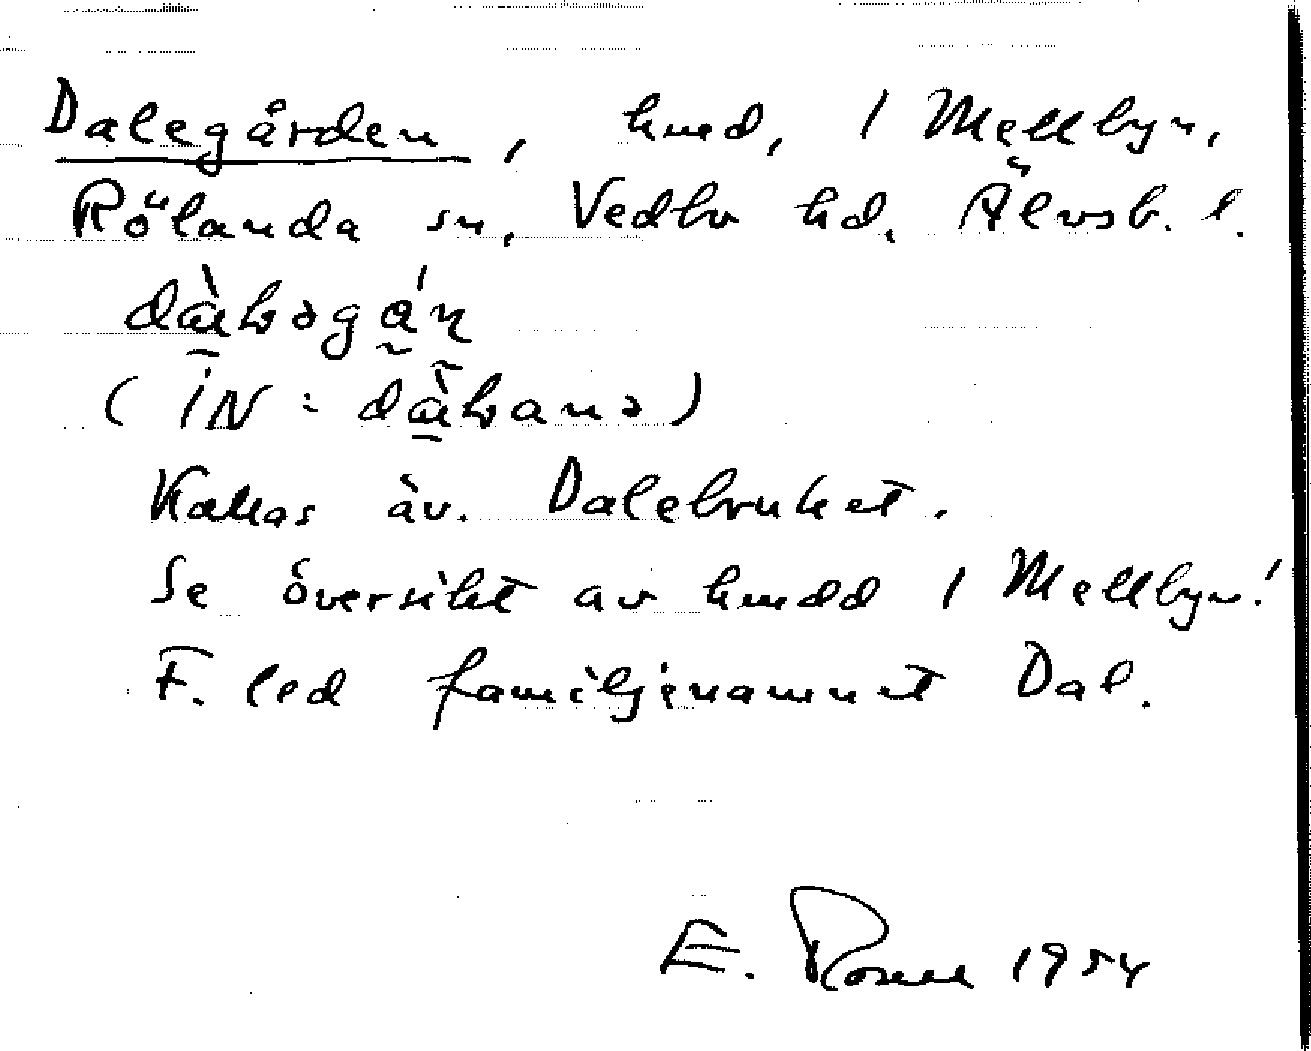 Dalegården, hmd, 1 Mellbyn,
Rölanda sn, Vedbo hd, Älvsb. l.
(IN:
Kallas äv. Dalebruket.
Se översikt av hmdd 1 Mellbyn!
F. led familjenamnet Dal.
E. Rosell 1954